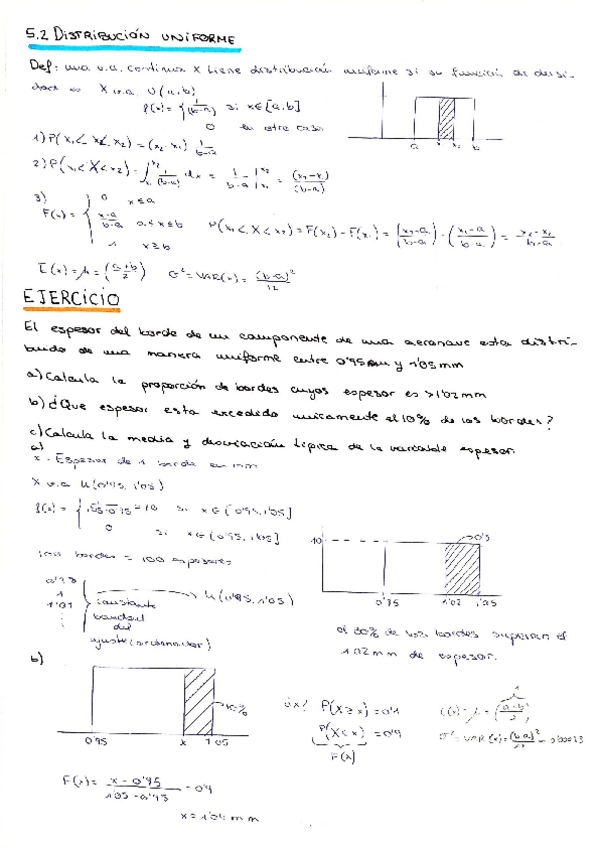 5.2 DISTRIBUCIÓN UNIFORME
Def: una v.a. continua X tiene distribución uniforme si su función de densi-
dad es X v.a. U(a,b)
f(x) = { 1/(b-a) si x∈[a,b]
0 en otro caso
a x₁ x₂ b
1) P(x₁< X< x₂) = (x₂-x₁) 1/b-a
2) P(x₁< X< x₂) = ∫ 1/(b-a) dx = 1/b-a = (x₂-x₁)/(b-a)
3) F(x) = { 0 x≤a
x-a/b-a a<x≤b P(x₁< X< x₂) = F(x₂) - F(x₁) = (x₂-a/b-a) - (x₁-a/b-a) = x₂-x₁/b-a
1 x≥b
E(x) = μ = (a+b/2) σ² = VAR(x) = (b-a)²/12
EJERCICIO
El espesor del borde de un componente de una aeronave esta distri-
buido de una manera uniforme entre 0'95mm y 1'05mm
a) Calcula la proporción de bordes cuyos espesor es >1'02mm
b) ¿Que espesor esta excedido unicamente el 10% de los bordes?
c) Calcula la media y desviación tipica de la variable espesor.
a)
x = Espesor de 1 borde en mm
X v.a U(0'95, 1'05)
f(x) = { = 10 si x∈[0'95, 1'05]
0 si x∈[0'95, 1'05]
bordes = 100 espesores
1
1'01
constante
U(0'95, 1'05)
10
0'95 1'02 1'05
el 30% de los bordes superan el
1'02mm de espesor.
b)
10%
0'95 x 1'05
¿x? P(X≥x) = 0'1
P(X<x) = 0'9
F(x)
σ² = VAR(x) = (b-a)²/12
F(x) = x - 0'95/1'05 - 0'95 = 0'9
x = 1'04 mm